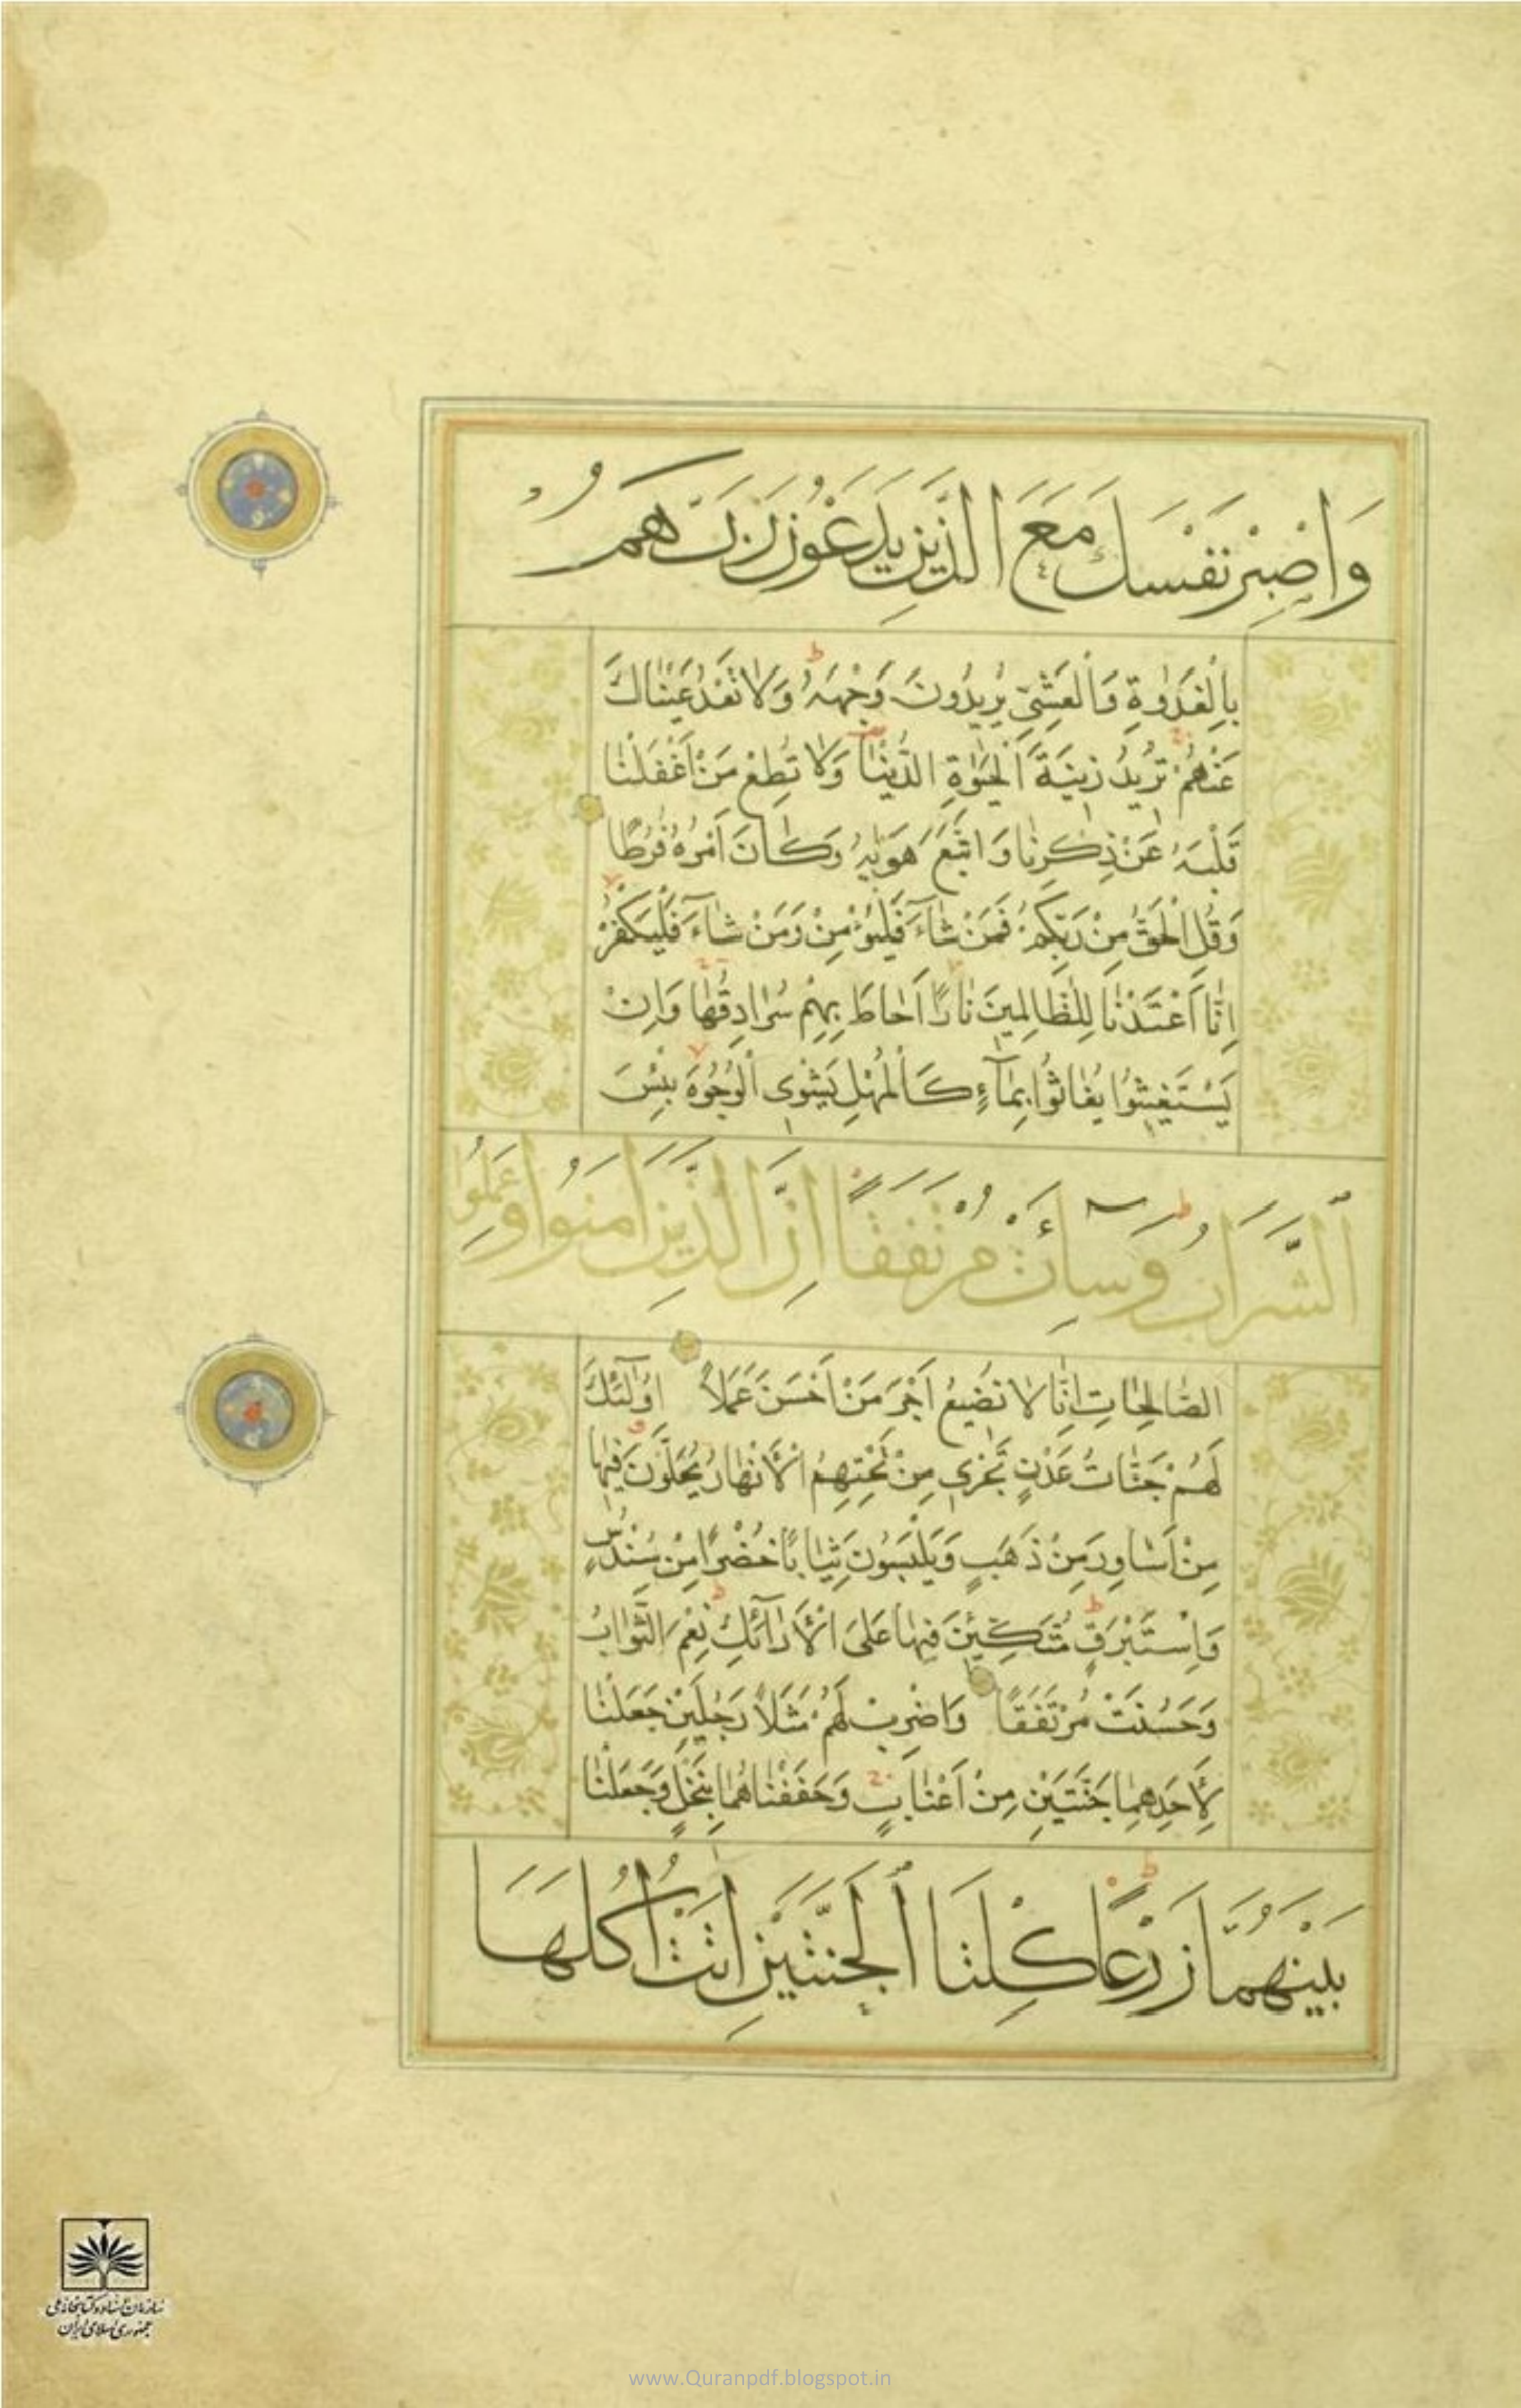 وَاصْبِرْ نَفْسَكَ مَعَ الَّذِينَ يَدْعُونَ رَبَّهُمْ
بِالْغَدٰوةِ وَالْعَشِىِّ يُرِيدُونَ وَجْهَهُ وَلَا تَعْدُ عَيْنَاكَ
عَنْهُمْ تُرِيدُ زِينَةَ الْحَيٰوةِ الدُّنْيَا وَلَا تُطِعْ مَنْ اَغْفَلْنَا
قَلْبَهُ عَنْ ذِكْرِنَا وَاتَّبَعَ هَوٰيهُ وَكَانَ اَمْرُهُ فُرُطًا
وَقُلِ الْحَقُّ مِنْ رَبِّكُمْ فَمَنْ شَآءَ فَلْيُؤْمِنْ وَمَنْ شَآءَ فَلْيَكْفُرْ
اِنَّا اَعْتَدْنَا لِلظَّالِمِينَ نَارًا اَحَاطَ بِهِمْ سُرَادِقُهَا وَاِنْ
يَسْتَغِيثُوا يُغَاثُوا بِمَآءٍ كَالْمُهْلِ يَشْوِى الْوُجُوهَ بِئْسَ
الشَّرَابُ وَسَآءَتْ مُرْتَفَقًا اِنَّ الَّذِينَ اٰمَنُوا وَعَمِلُوا
الصَّالِحَاتِ اِنَّا لَا نُضِيعُ اَجْرَ مَنْ اَحْسَنَ عَمَلًا اُولٰٓئِكَ
لَهُمْ جَنَّاتُ عَدْنٍ تَجْرِى مِنْ تَحْتِهِمُ الْاَنْهَارُ يُحَلَّوْنَ فِيهَا
مِنْ اَسَاوِرَ مِنْ ذَهَبٍ وَيَلْبَسُونَ ثِيَابًا خُضْرًا مِنْ سُنْدُسٍ
وَاِسْتَبْرَقٍ مُتَّكِئِينَ فِيهَا عَلَى الْاَرَآئِكِ نِعْمَ الثَّوَابُ
وَحَسُنَتْ مُرْتَفَقًا وَاضْرِبْ لَهُمْ مَثَلًا رَجُلَيْنِ جَعَلْنَا
لِاَحَدِهِمَا جَنَّتَيْنِ مِنْ اَعْنَابٍ وَحَفَفْنَاهُمَا بِنَخْلٍ وَجَعَلْنَا
بَيْنَهُمَا زَرْعًا كِلْتَا الْجَنَّتَيْنِ اٰتَتْ اُكُلَهَا
سازمان اسناد و کتابخانه ملی
جمهوری اسلامی ایران
www.Quranpdf.blogspot.in